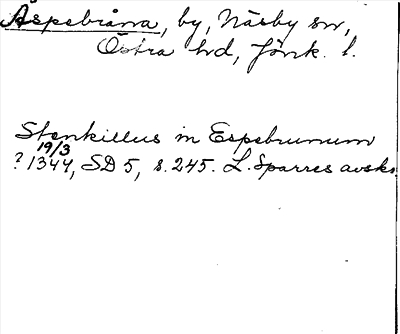 Aspebråna, by, Näsby sn,
Östra hd, Jönk. l.
Stenkillus in Espebrunum
19/3
? 1344, SD 5, s. 245. L. Sparres avskr.